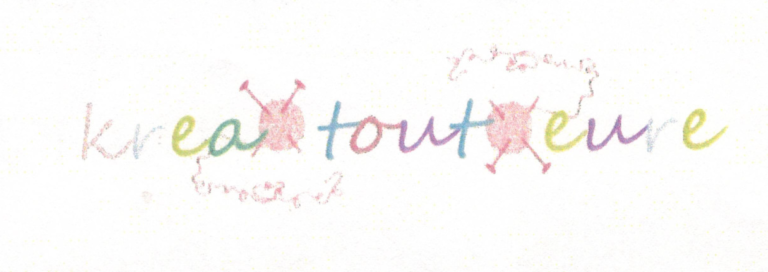 krea tout eure